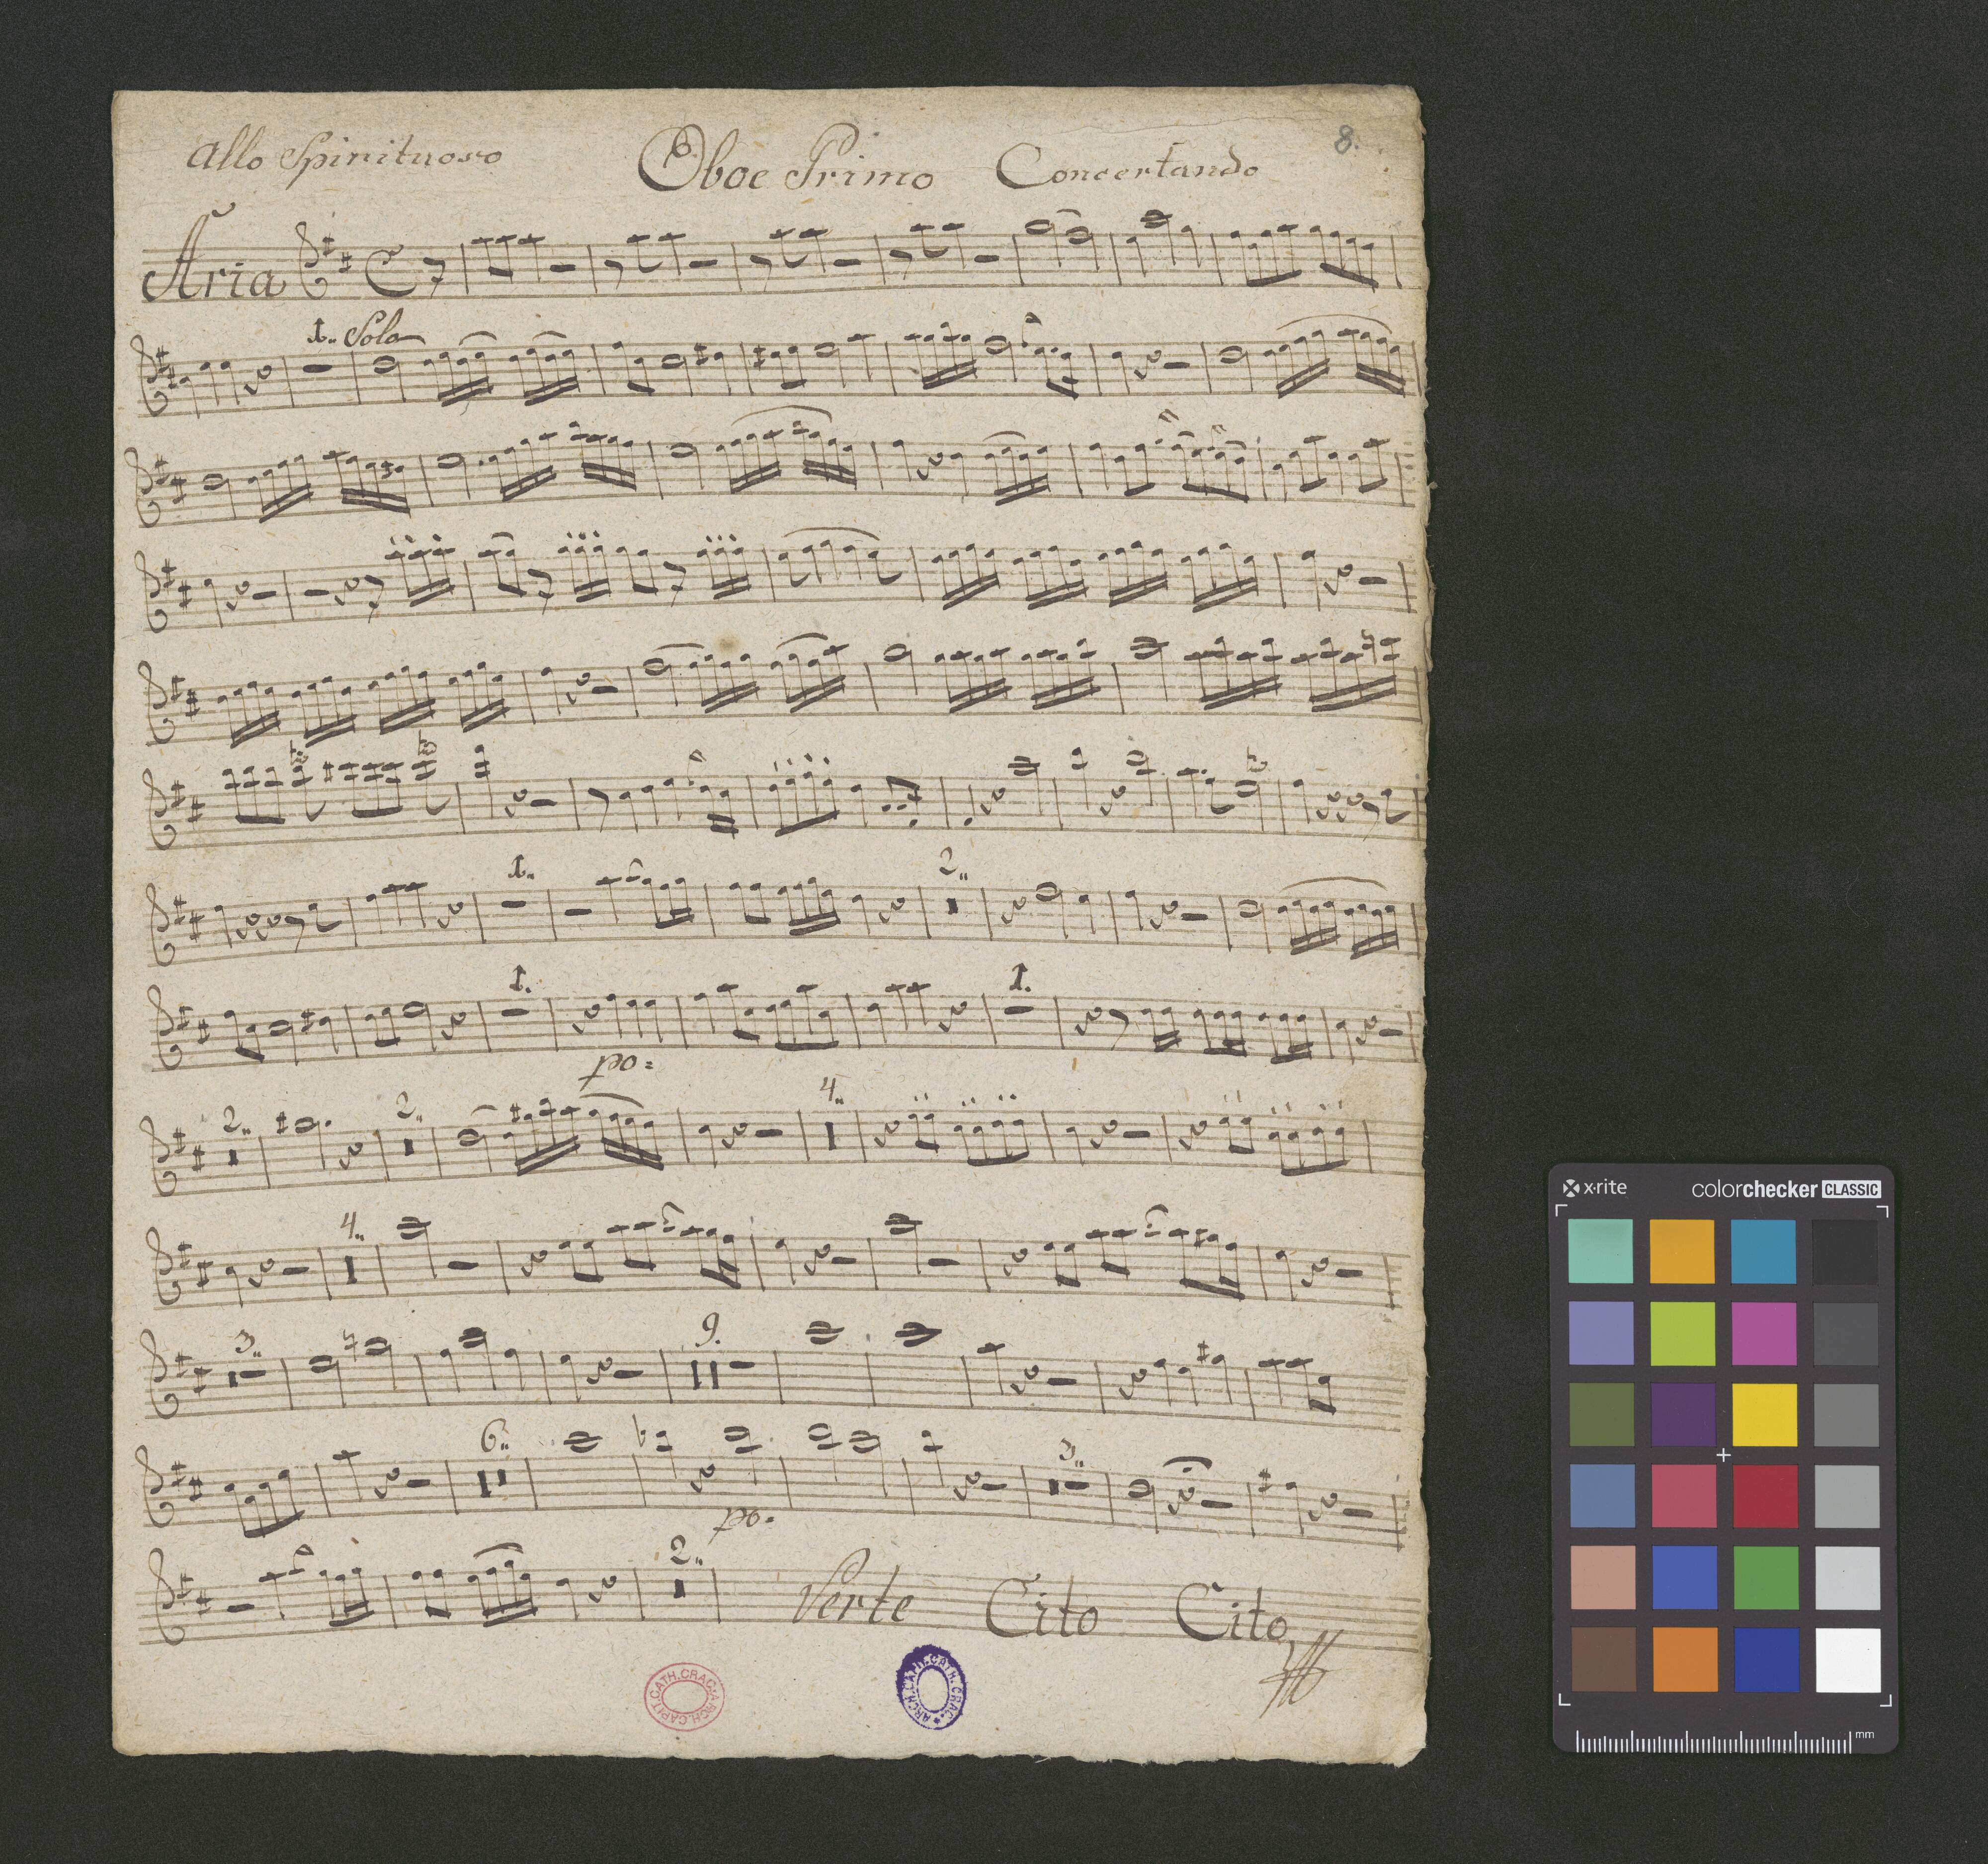 8.
Allo Spirituoso Oboe Primo Concertando
Aria
1.. Solo
1.. 2..
1. 1.
po=
2.. 2.. 4..
4..
3.. 9.
6.. 3..
po.
2..
Verte Cito Cito
ARCH.CAPIT.CATH.CRAC.
ARCH.CAPIT.CATH.CRAC.
x-rite colorchecker CLASSIC
mm